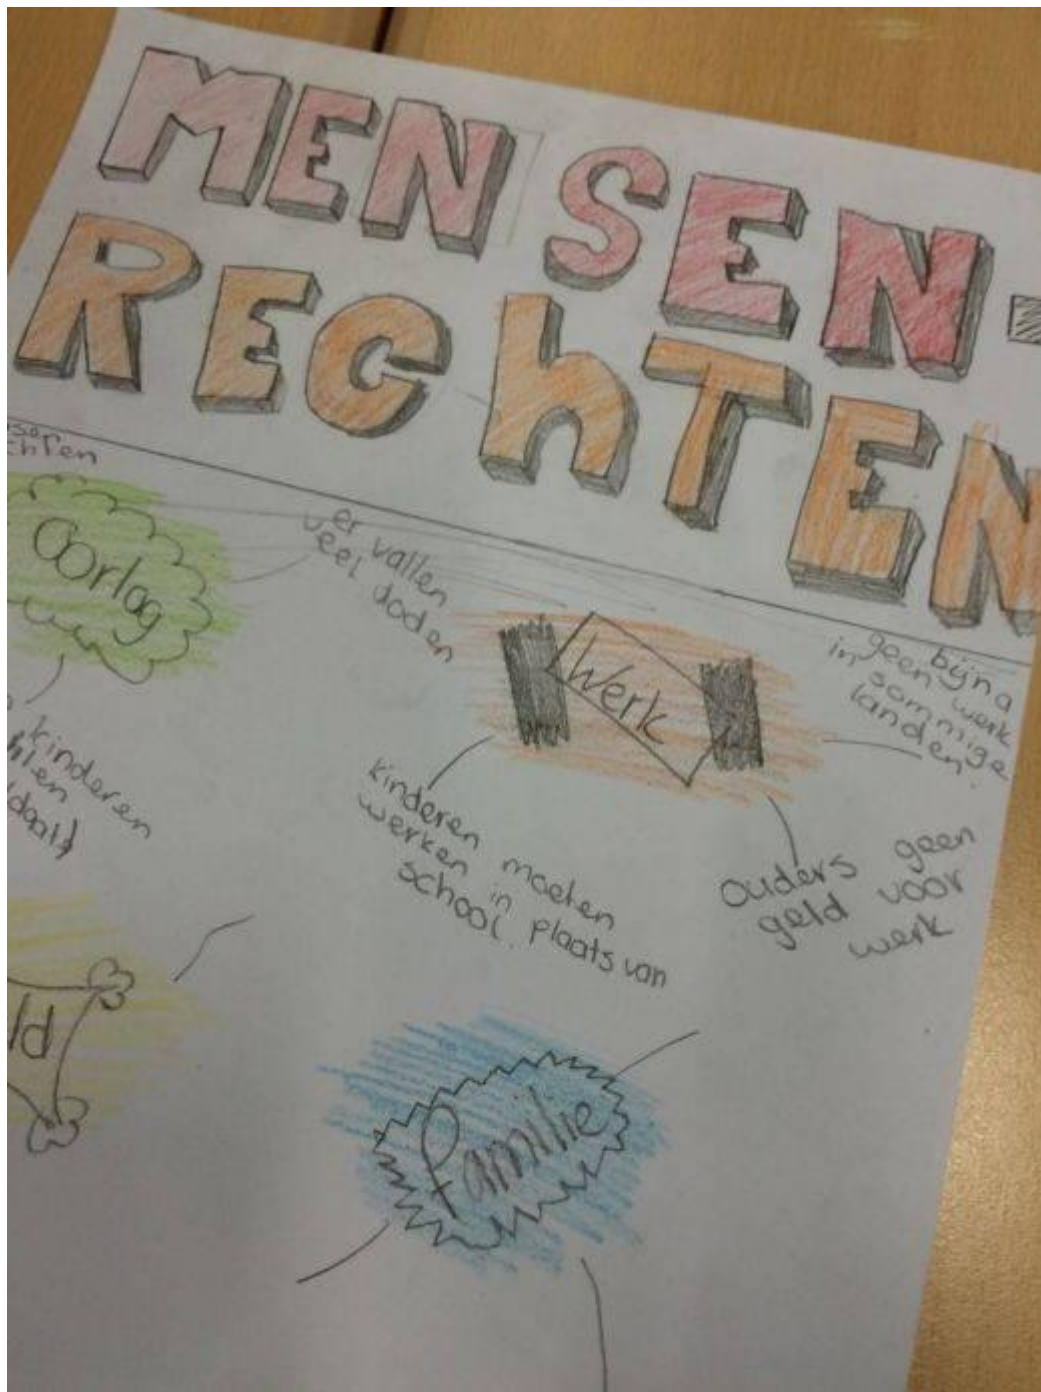 MENSEN-
RECHTEN
Oorlag
er vallen
veel doden
kinderen
Werk
bijna
geen werk
in sommige
landen.
kinderen moeten
werken in plaats van
school.
ouders geen
geld voor
werk
familie